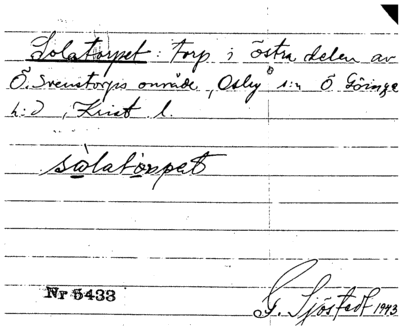 Solatorpet: torp i östra delen av
Ö. Svenstorps område, Osby s:n Ö Göinge
h:d, Krist l.
sòlatòrpet
Nr 5433
G. Sjöstedt 1943